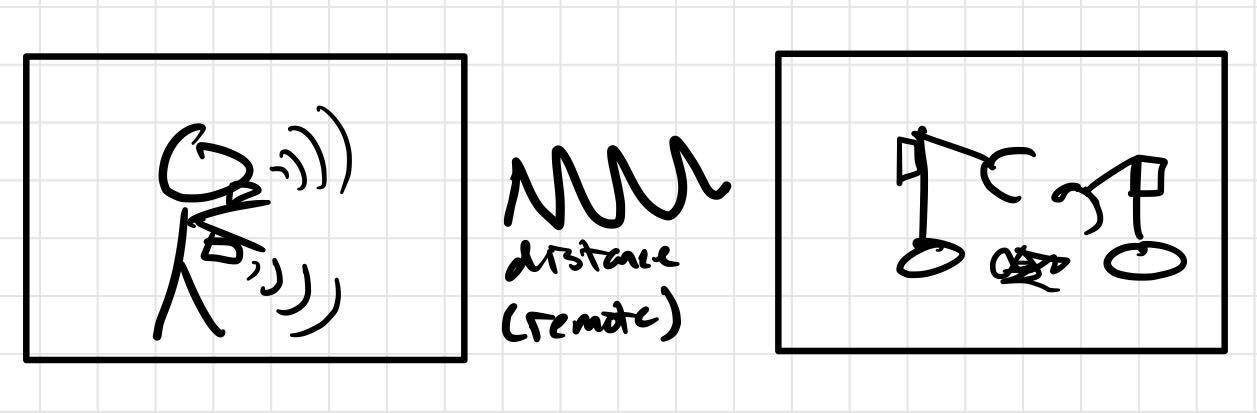 distance
(remote)